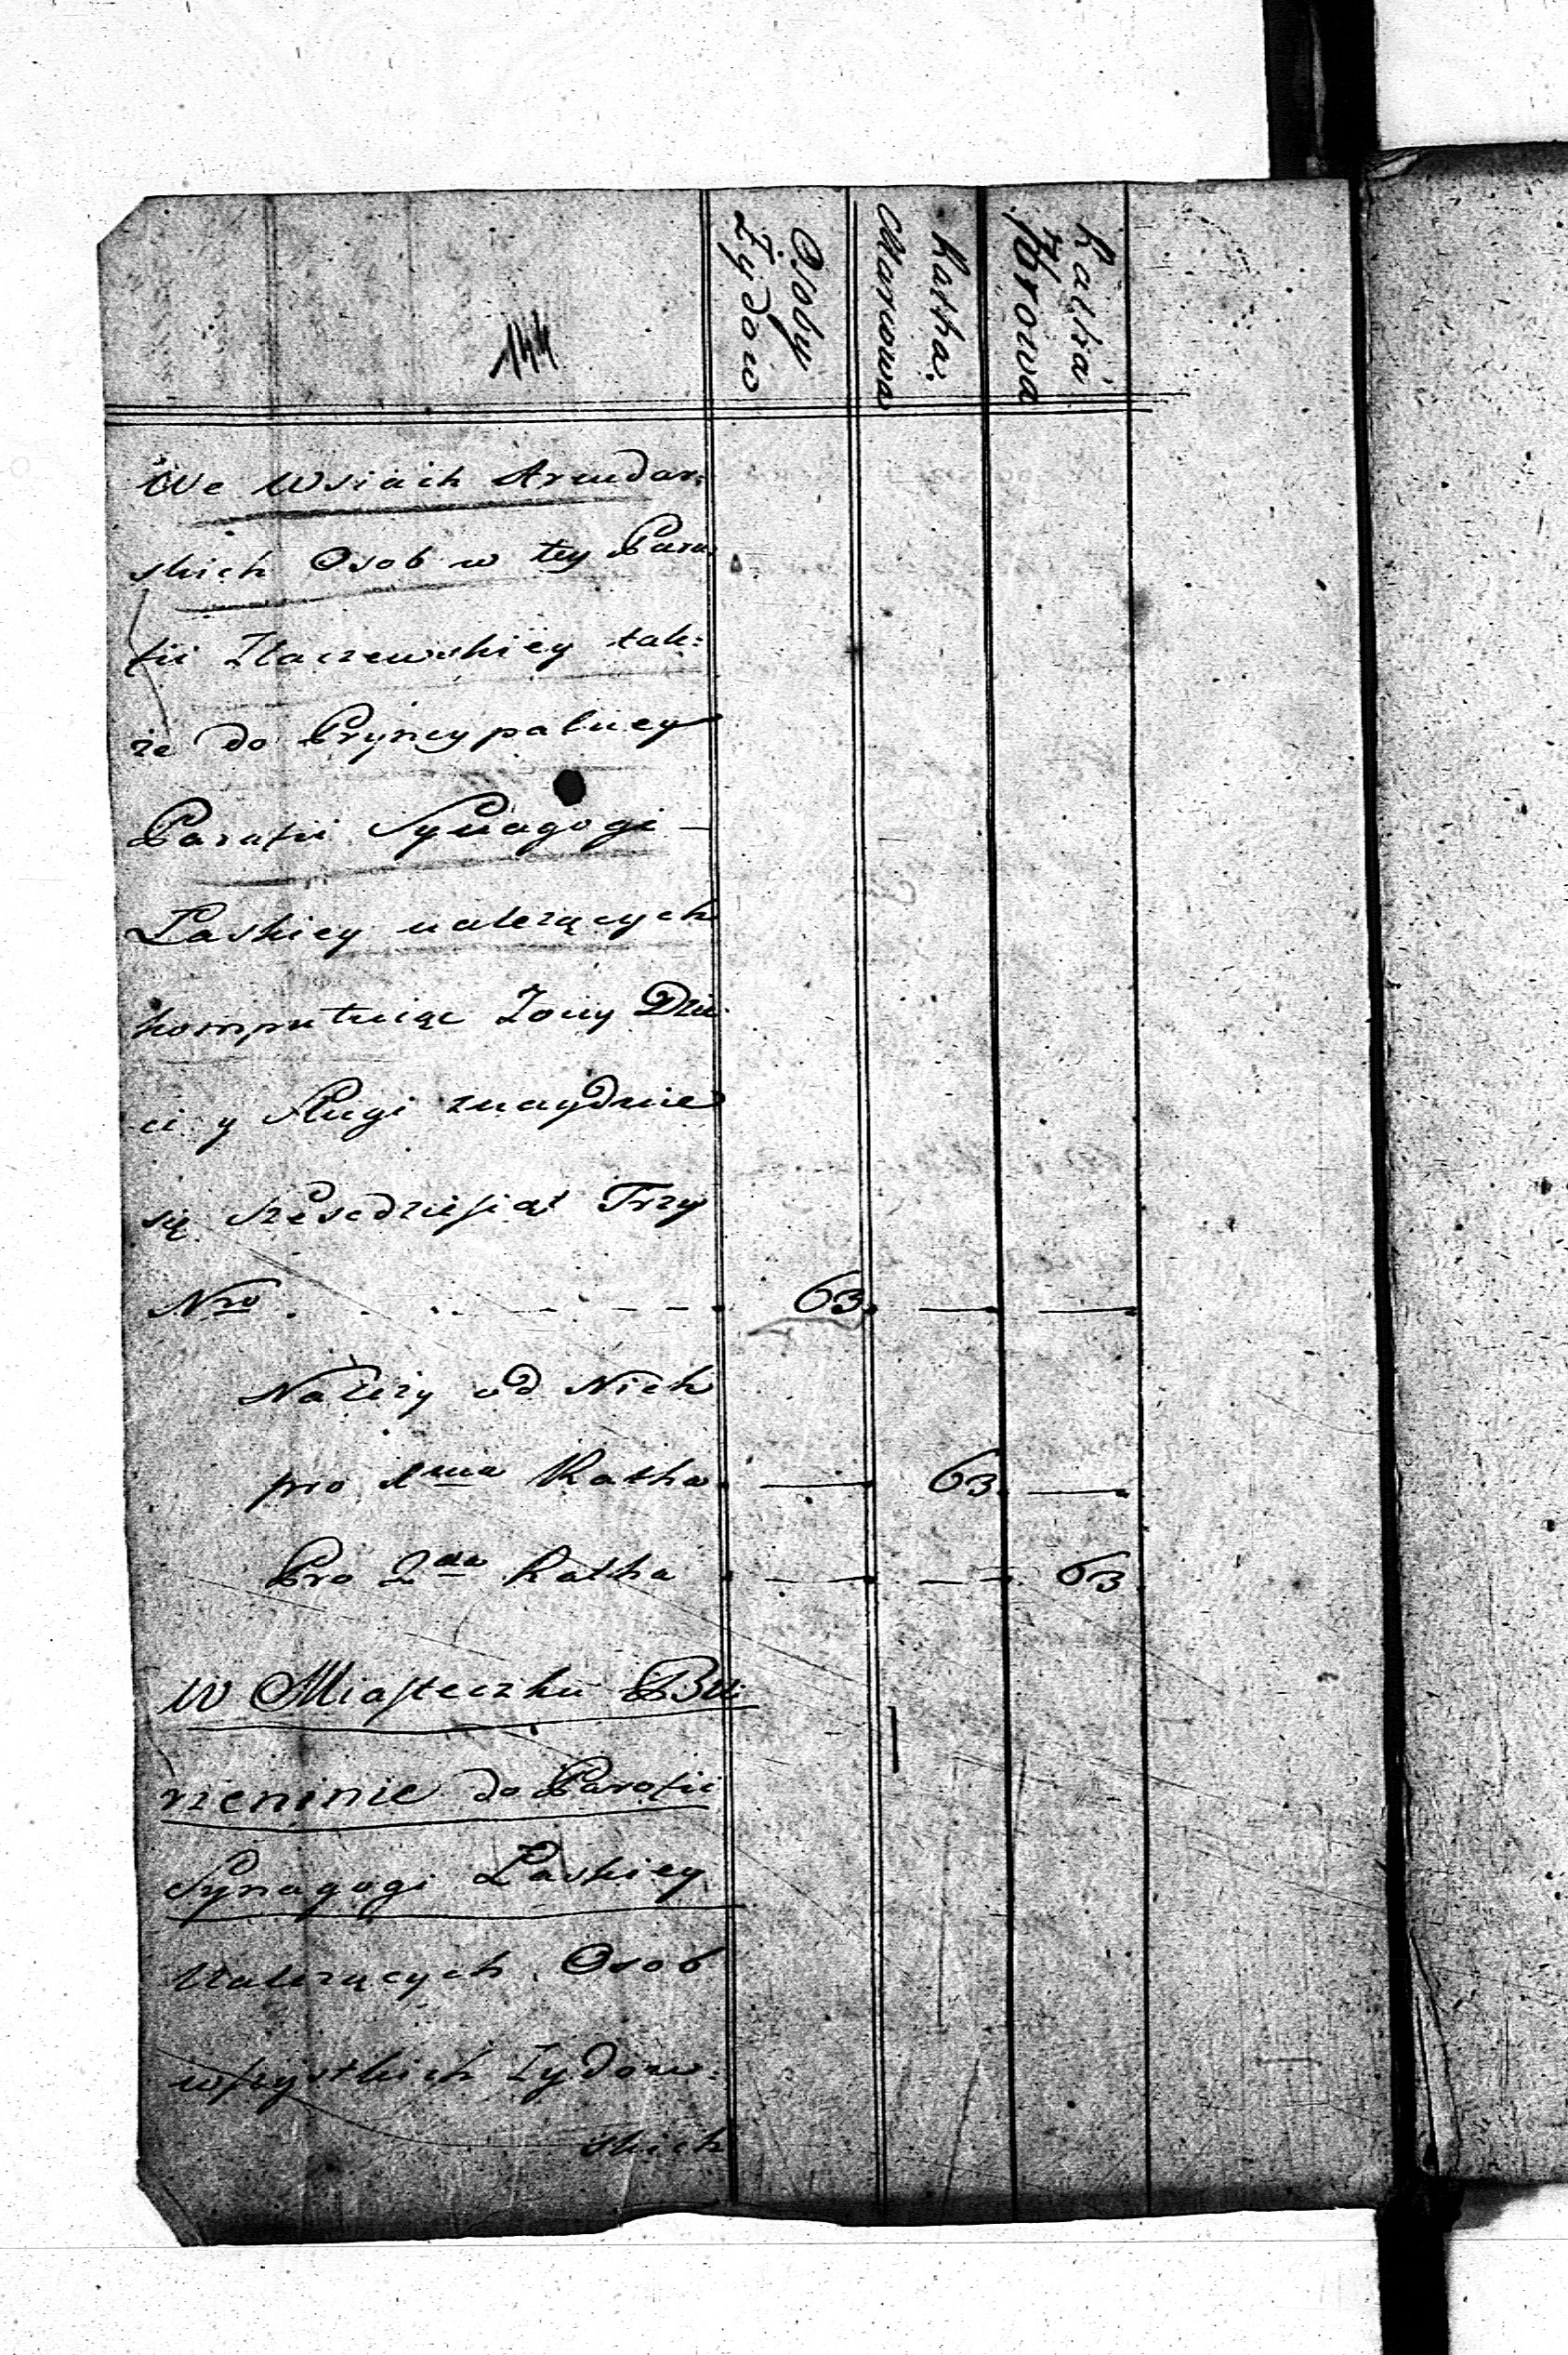 144
Osoby
Żydow
Ratha
Marcowa
Ratha
7browa
We Wsiach Arendar:
skich Osob w tey Para
fii Złaczewskiey tak:
że do Pryncypalney
Parafii Synagogi
Laskiey należących
komputuiąc Zony Dzie
ci y Sługi znayduie
się Szescdziesiąt Trzy
Nro 63
Należy od Nich
pro 1ma Ratha 63
Pro 2da Ratha 63
W Miasteczku Bu:
rzeninie do Parafii
Synagogi Laskiey
Należących Osob
wszystkich Zydow:
skich